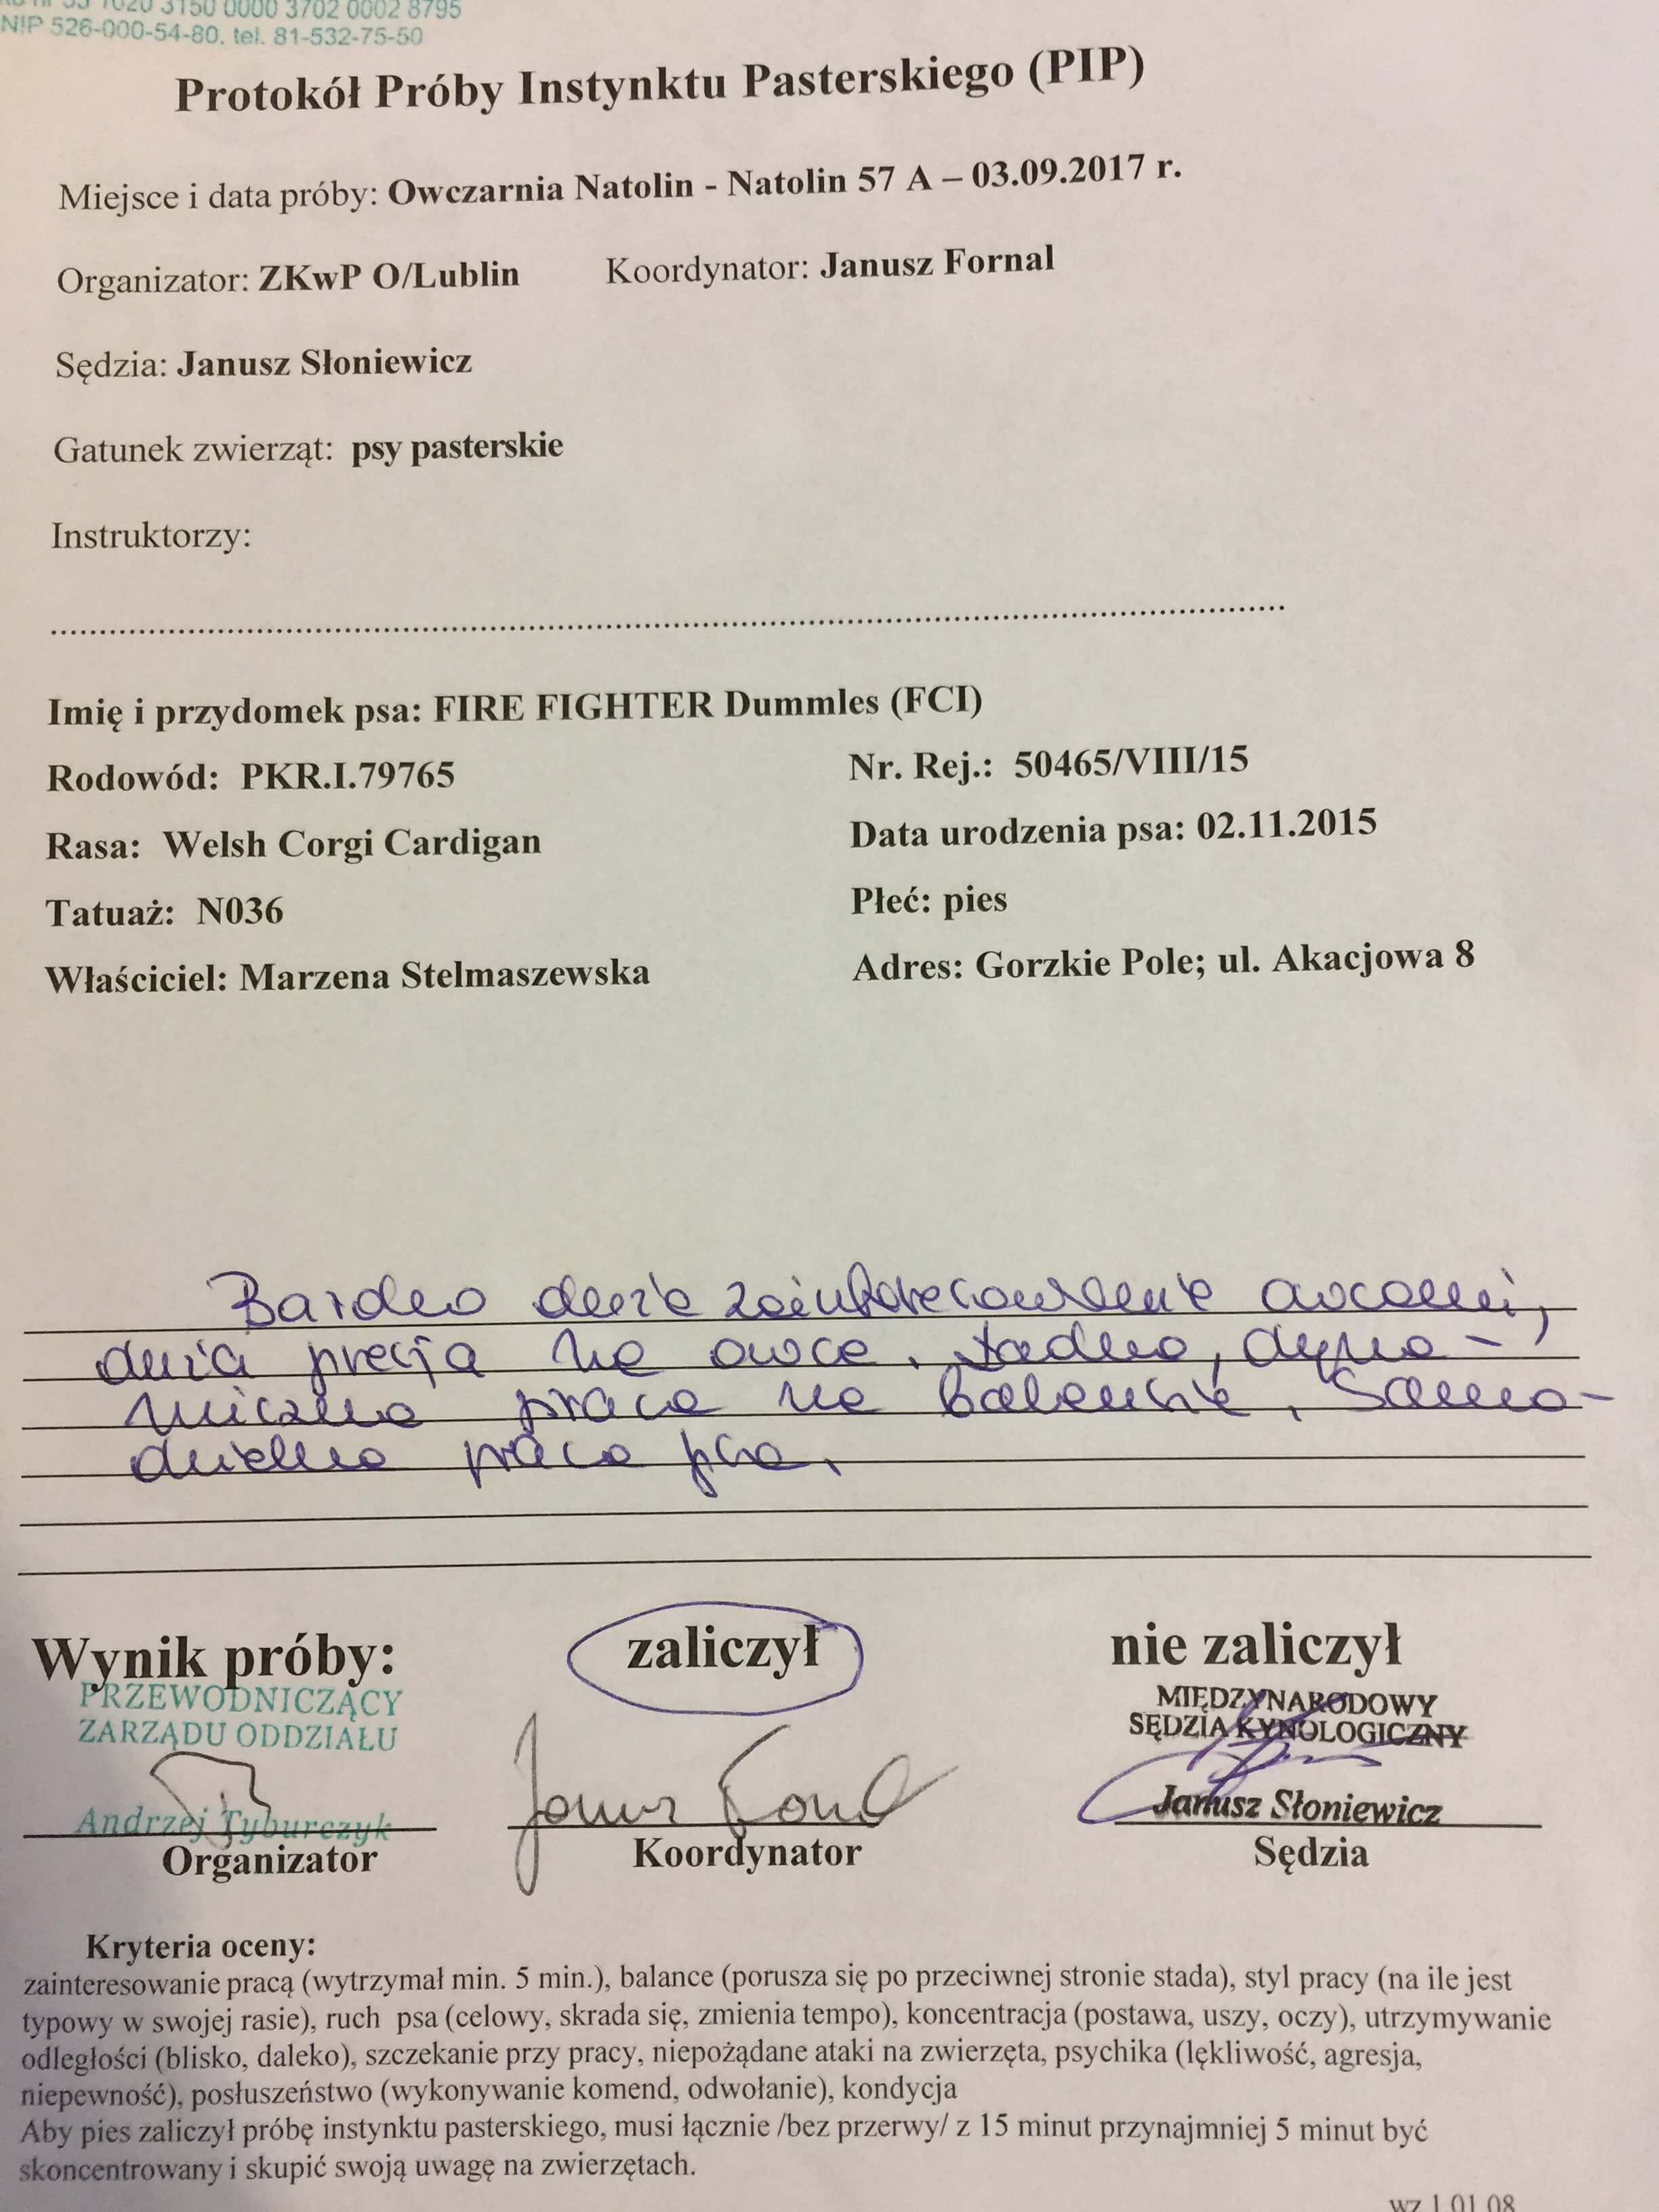 1020 3150 0000 3702 0002 8795
NIP 526-000-54-80, tel. 81-532-75-50
Protokół Próby Instynktu Pasterskiego (PIP)
Miejsce i data próby: Owczarnia Natolin - Natolin 57 A – 03.09.2017 r.
Organizator: ZKwP O/Lublin Koordynator: Janusz Fornal
Sędzia: Janusz Słoniewicz
Gatunek zwierząt: psy pasterskie
Instruktorzy:
Imię i przydomek psa: FIRE FIGHTER Dummles (FCI)
Rodowód: PKR.I.79765 Nr. Rej.: 50465/VIII/15
Rasa: Welsh Corgi Cardigan Data urodzenia psa: 02.11.2015
Tatuaż: N036 Płeć: pies
Właściciel: Marzena Stelmaszewska Adres: Gorzkie Pole; ul. Akacjowa 8
Bardzo duże zainteresowanie owcami,
duża presja na owce. Ładna, dyna-
miczna praca na balansie. Samo-
dzielna praca psa.
Wynik próby: zaliczył nie zaliczył
PRZEWODNICZĄCY
ZARZĄDU ODDZIAŁU
Andrzej Tyburczyk
MIĘDZYNARODOWY
SĘDZIA KYNOLOGICZNY
Janusz Słoniewicz
Organizator Koordynator Sędzia
Kryteria oceny:
zainteresowanie pracą (wytrzymał min. 5 min.), balance (porusza się po przeciwnej stronie stada), styl pracy (na ile jest
typowy w swojej rasie), ruch psa (celowy, skrada się, zmienia tempo), koncentracja (postawa, uszy, oczy), utrzymywanie
odległości (blisko, daleko), szczekanie przy pracy, niepożądane ataki na zwierzęta, psychika (lękliwość, agresja,
niepewność), posłuszeństwo (wykonywanie komend, odwołanie), kondycja
Aby pies zaliczył próbę instynktu pasterskiego, musi łącznie /bez przerwy/ z 15 minut przynajmniej 5 minut być
skoncentrowany i skupić swoją uwagę na zwierzętach.
wz 1.01.08